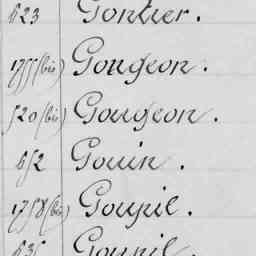 623 Gontier.
1755 (bis) Gougeon.
520 (bis) Gougeon.
652 Gouin.
1758 (bis) Goupil.
635 Goupil.